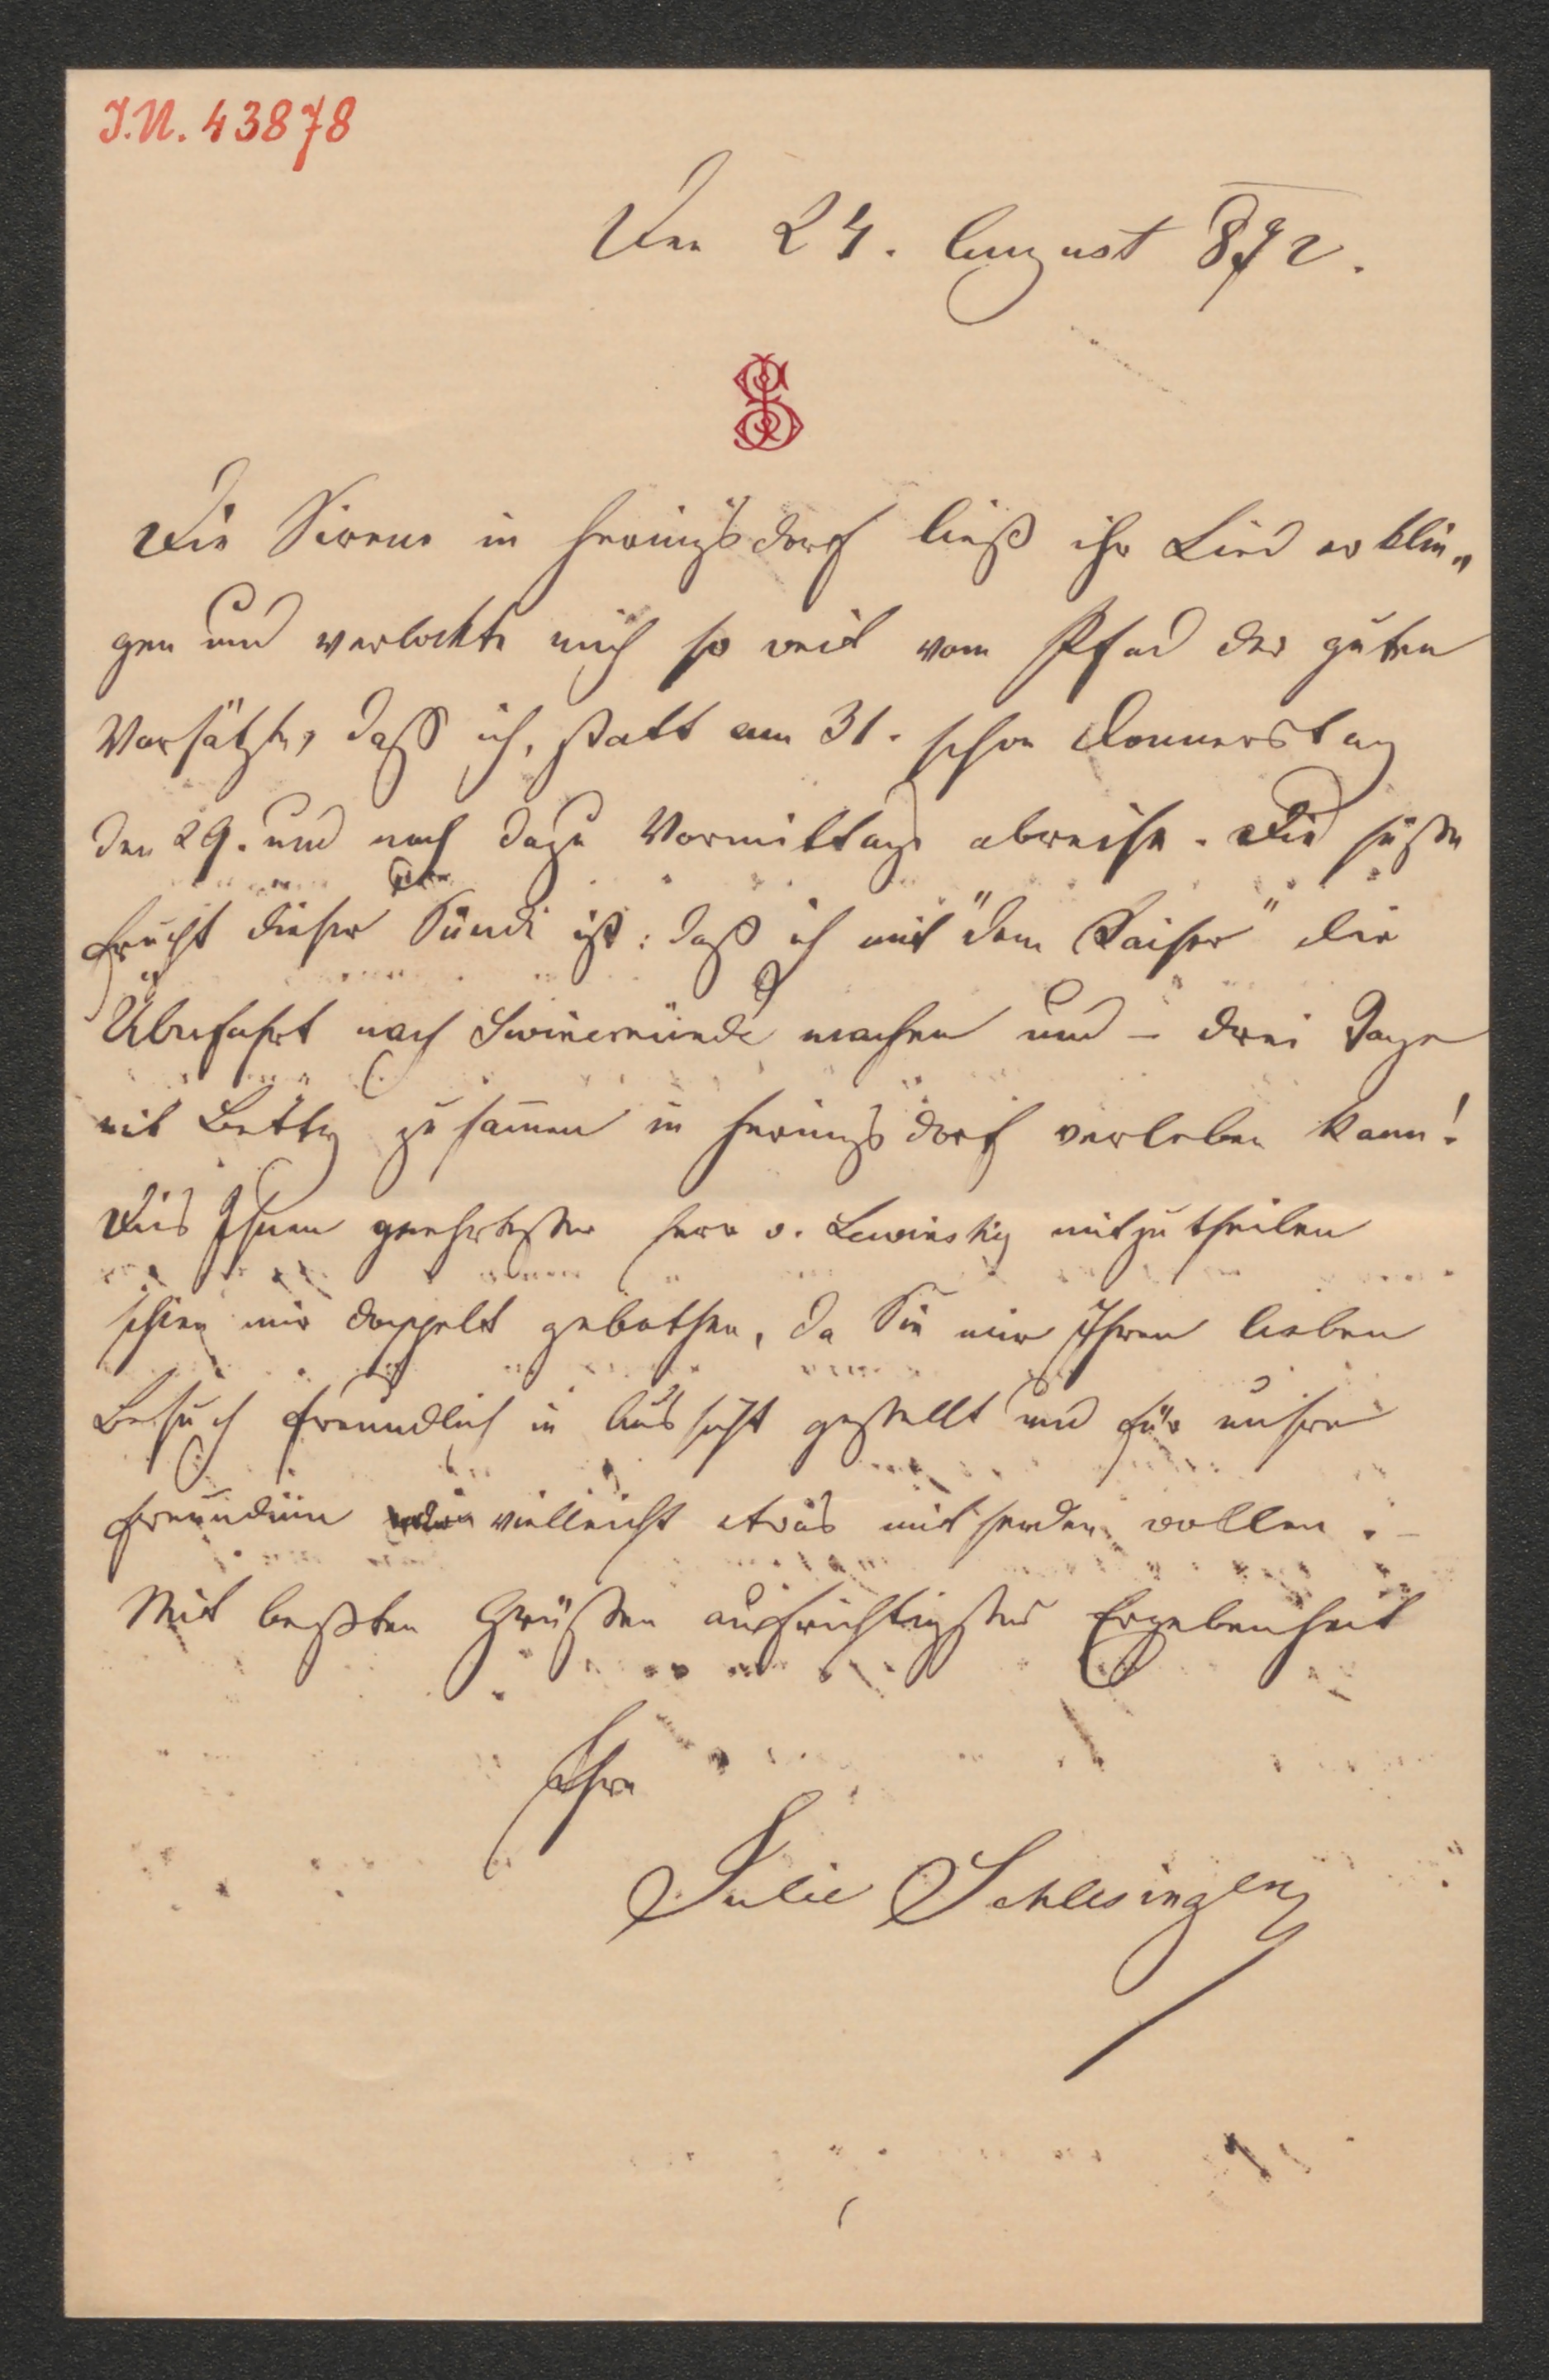 I.N. 43878
Den 24. August 872.
JS
Die Sirene in Heringsdorf ließ ihr Lied erklin„
gen und verlockte mich so weit vom Pfad der guten
Vorsätze, daß ich, statt am 31. schon Donnerstag
den 29. und noch dazu Vormittags abreise. Die süße
Frucht dieser Sünde ist: daß ich mit "dem Kaiser" die
Überfahrt nach Swinemünde machen und – drei Tage
mit Betty zusam̄en in Heringsdorf verleben kann!
Dies Ihnen geehrtester Herr v. Lewinsky mitzutheilen
schien mir doppelt gebothen, da Sie mir Ihren lieben
Besuch freundlich in Aussicht gestellt und für unsre
Freundinn vielleicht etwas mitsenden wollen. –
Mit beßten Grüßen aufrichtigster Ergebenheit
Ihre
Julie Schlesinger